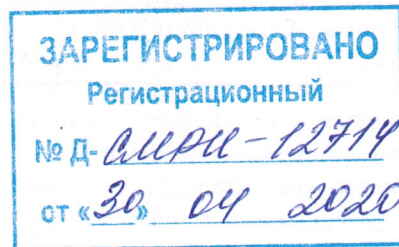 ЗАРЕГИСТРИРОВАНО
Регистрационный
№ Д-СМРИ-12714
от «30» 04 2020